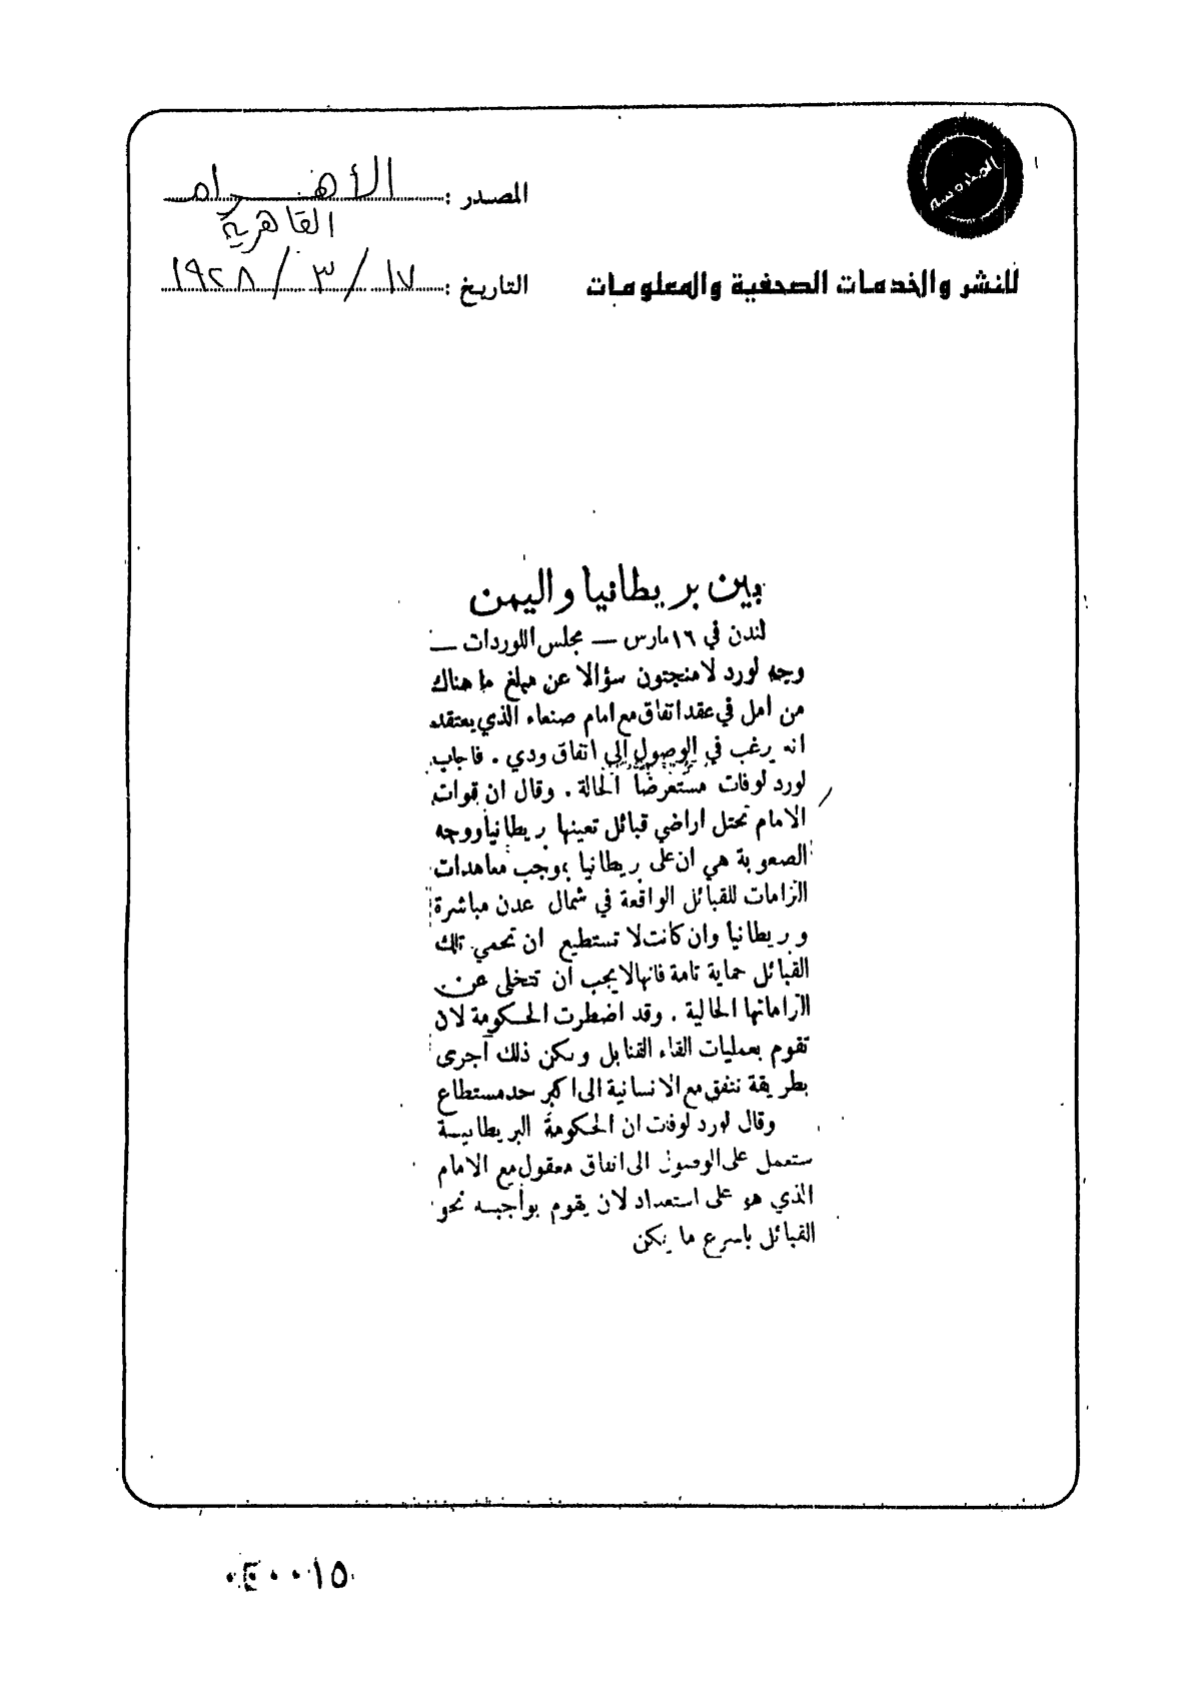 المصدر : الأهرام
القاهرية
للنشر والخدمات الصحفية والمعلومات
التاريخ : ١٧ / ٣ / ١٩٢٨
بين بريطانيا واليمن
لندن في ١٦ مارس — مجلس اللوردات —
وجه لورد لامنجتون سؤالا عن مبلغ ما هناك
من امل في عقد اتفاق مع امام صنعاء الذي يعتقد
انه يرغب في الوصول الى اتفاق ودي . فاجاب
لورد لوفات مستعرضاً الحالة . وقال ان قوات
الامام تحتل اراضي قبائل تعينها بريطانيا ووجه
الصعوبة هي ان على بريطانيا بموجب معاهدات
الزامات للقبائل الواقعة في شمال عدن مباشرة
وبريطانيا وان كانت لا تستطيع ان تحمي تلك
القبائل حماية تامة فانها لا يجب ان تتخلى عن
الزاماتها الحالية . وقد اضطرت الحكومة لان
تقوم بعمليات القاء القنابل ولكن ذلك أجرى
بطريقة تتفق مع الانسانية الى اكبر حد مستطاع
وقال لورد لوفت ان الحكومة البريطانية
ستعمل على الوصول الى اتفاق معقول مع الامام
الذي هو على استعداد لان يقوم بواجبه نحو
القبائل باسرع ما يمكن